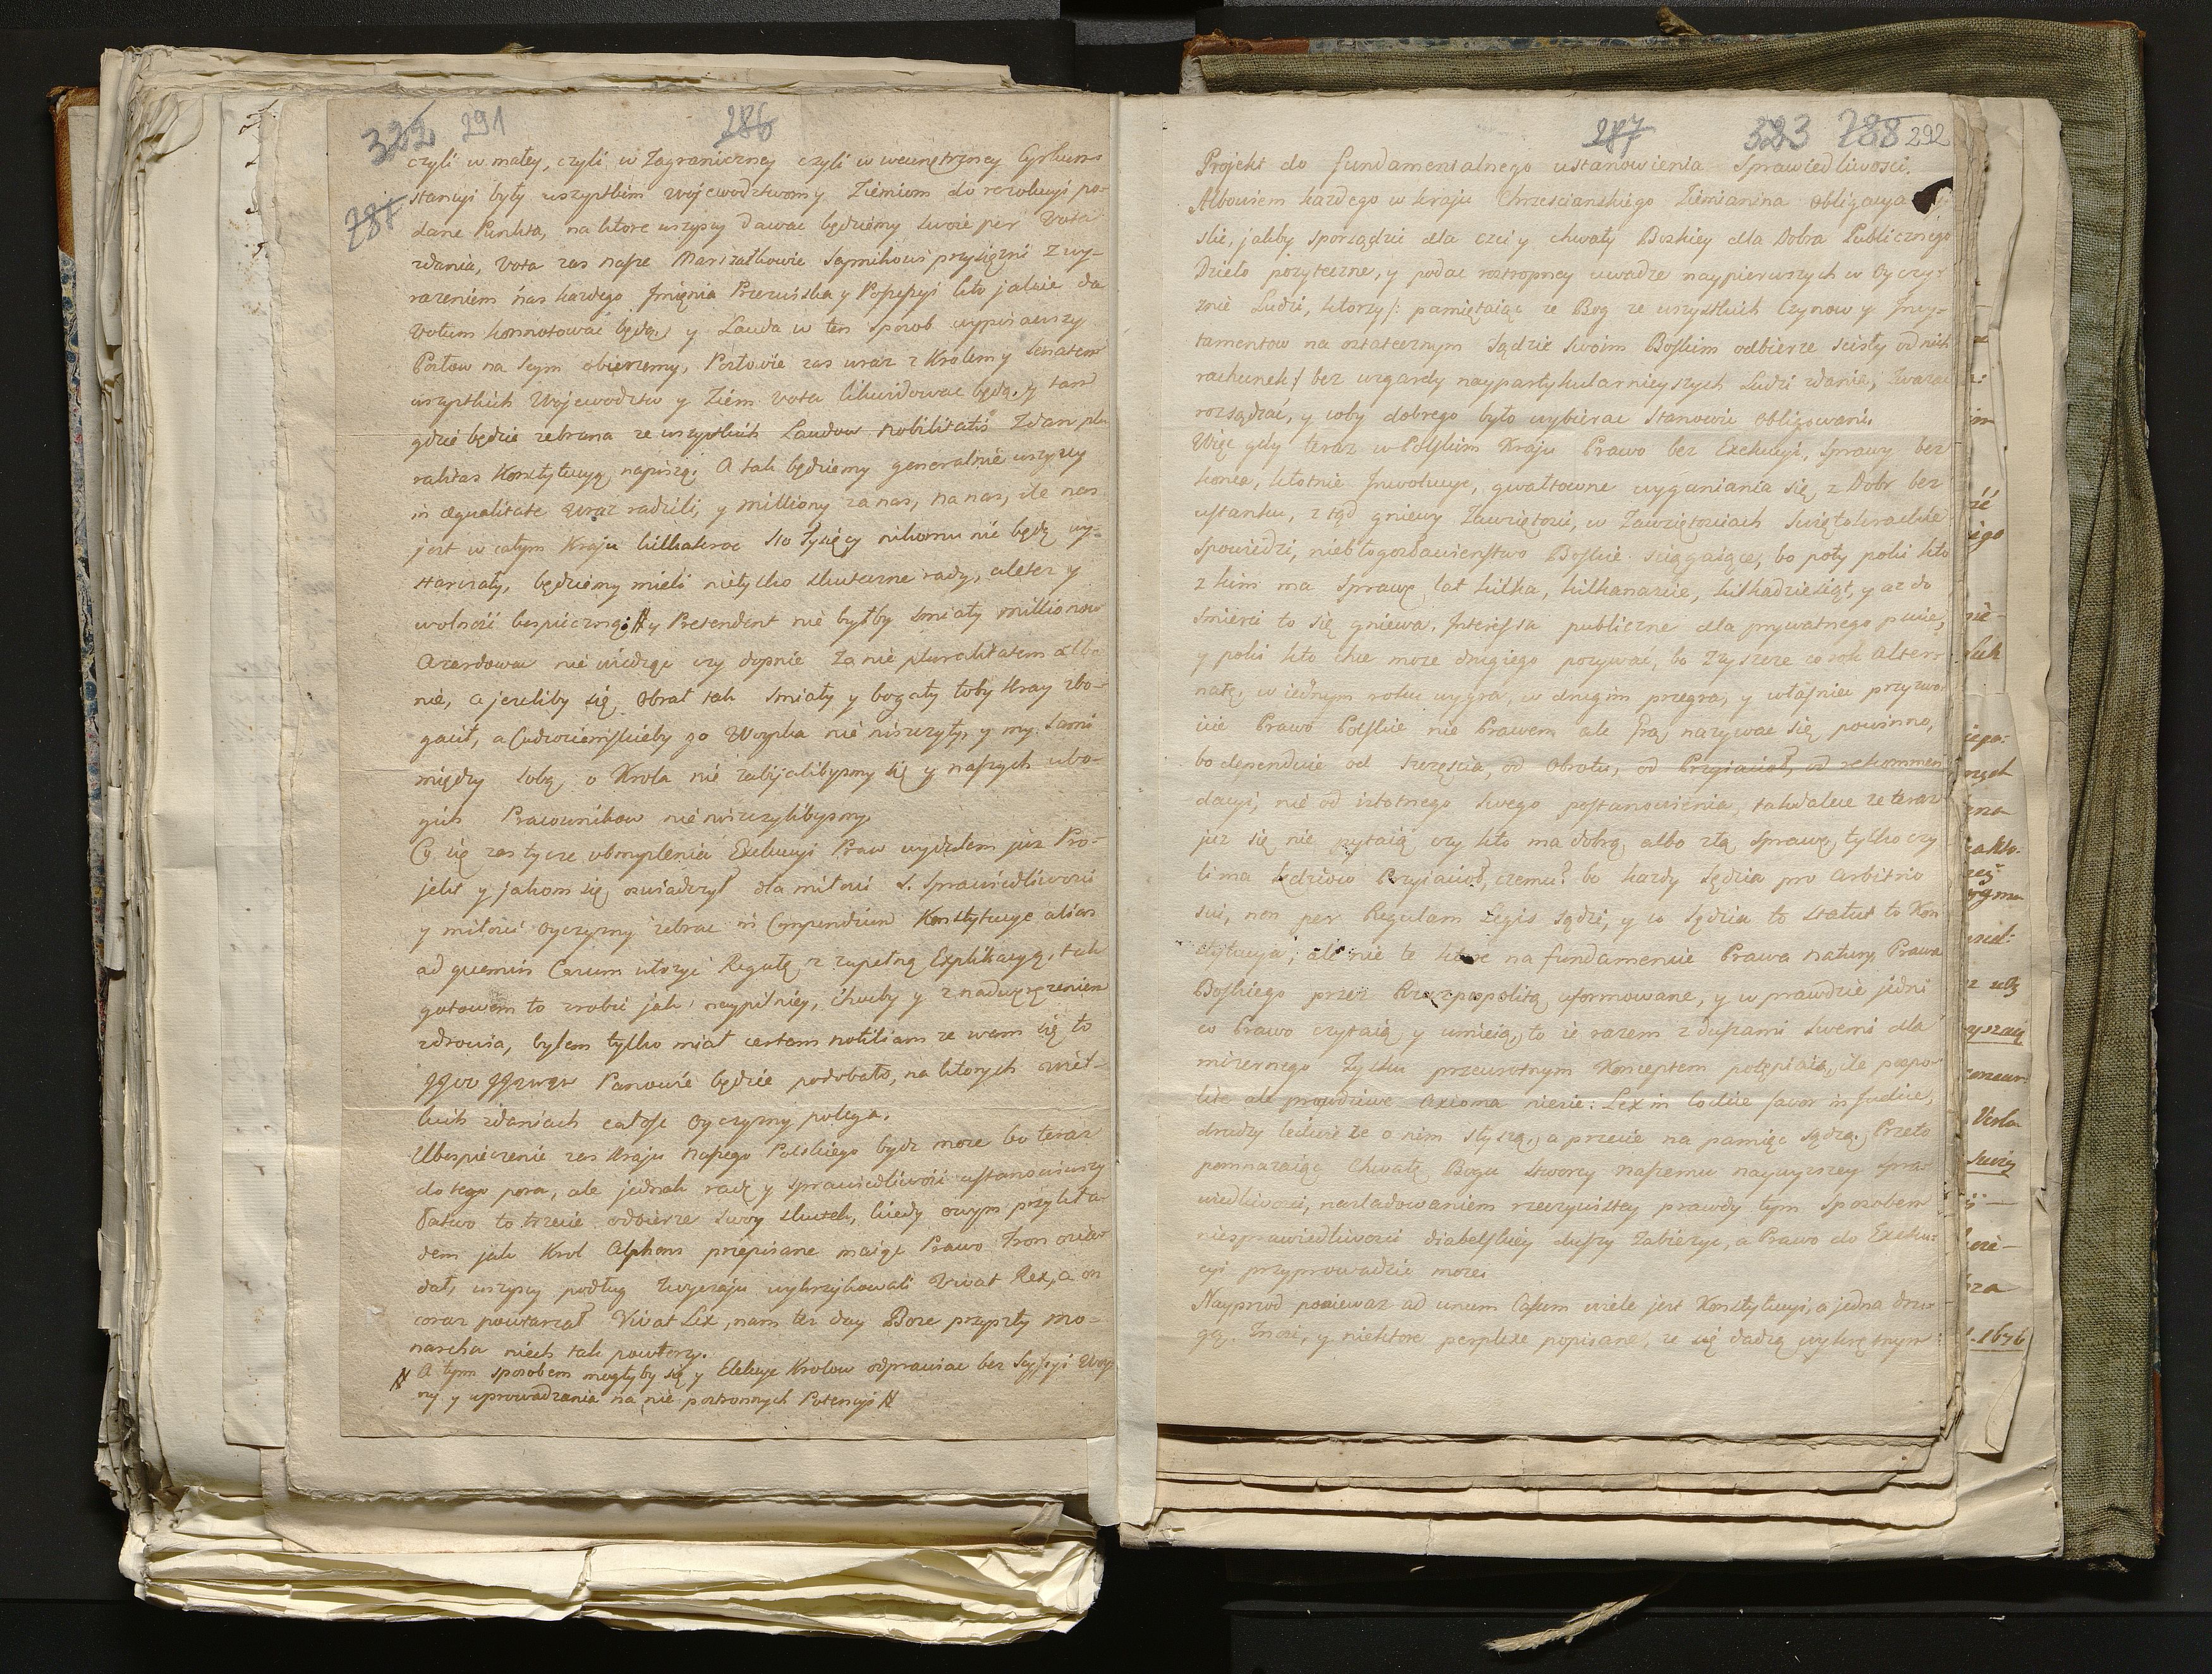 322 291 286
787
czyli w małey, czyli w Zagraniczney czyli w wewnętrzney Cyrkum-
stancyi były wszystkim Wojewodztwom y Ziemiom do rezolucyi po-
dane Punkta, na ktore wszyscy dawac będziemy swoie per Vota
zdania, Vota zas nasze Marszałkowie Sejmikowi przysiężni z wy-
razeniem nas kazdego Jmięnia Przezwiska y Possessyi kto jakie da
Votum konnotować będą, y Lauda w ten Sposob wypisawszy
Posłow na Seym obierzemy, Posłowie zas wraz z Krolem y Senatem
wszystkich Wojewodztw y Ziem vota likwidować będą, y tam
gdzie będzie zebrana ze wszystkich Laudow nobilitatis Zdan plu
ralitas Konstytucyą napiszą. A tak będziemy generalnie wszyscy
in æqualitate wraz radzili, y milliony za nas, na nas, ile nas
jest w całym Kraju kilkakroc sto tysięcy nikomu nie będą wy-
starczały, będziemy mieli nietylko skuteczne rady, ale tez y
wolność bespieczną: # y Pretendent nie byłby smiały millionow
Azardowac nie wiedząc czy dopnie za nie pluralitatem albo
nie, a jezeliby się obrał tak smiały y bogaty toby Kray zbo-
gacił, a Cudzoziemskieby go Woyska nie niszczyły, y my sami
między sobą o Krola nie zabijalibysmy się y naszych ubo-
gich Pracownikow nie niszczylibysmy.
Co się zas tycze obmyslenia Exekucyi Praw wyjdzłem juz Pro-
jekt y jakom się oswiadczył dla miłosci S. Sprawiedliwosci
y miłosci Oyczyzny zebrac in Compendium Konstytucye alias
ad quemvis Casum ułozyć Regułę z zupełną Explikacyą, tak
gotowem to zrobić jak naypilniey, choćby y z nadwerężeniem
zdrowia, bylem tylko miał certam notitiam ze wam się to
Panowie będzie podobało, na ktorych wiel-
kich zdaniach całosc Oyczyzny polega.
Ubespieczenie zas Kraju naszego Polskiego bydz moze bo teraz
do tego pora, ale jednak radę y sprawiedliwość ustanowiwszy
łatwo to trzecie odbierze swoy skutek, kiedy owym przykła-
dem jak Krol Alphons przepisane maiąc Prawo Tron osia-
dał, wszyscy podług zwyczaju wykrzykowali Vivat Rex, a on
coraz powtarzał Vivat Lex, nam tez day Boze przyszły mo-
narcha niech tak powtorzy.
# A tym sposobem mogłyby się y Elekcye Krolow odprawiac bez Scyssyi Woy
ny y uprowadzania na nie postronnych Potencyi #
287 323 788 292
Projekt do fundamentalnego ustanowienia Sprawiedliwosci.
Albowiem kazdego w kraju Chrzescianskiego Ziemianina obligacya
słie, jakby sporządzic dla czci y chwały Boskiey dla Dobra Publicznego
Dzieło pozyteczne, y podac roztropney uwadze naypierwszych w Oyczy-
znie Ludzi, ktorzy /: pamiętaiąc ze Bog ze wszystkich Czynow y Jnwy-
tamentow na ostatecznym Sądzie swoim Boskim odbierze scisły od nich
rachunek :/ bez wzgardy naypartykularnieyszych Ludzi zdania, Zwazac
rozsądzac, y coby dobrego było wybierac stanowic obligowani.
Więc gdy teraz w Polskim Kraju Prawo bez Exekucyi, Sprawy bez
konca, kłotnie Jnwolucye, gwałtowne wyganiania się z Dobr bez
ustanku, z tąd gniewy Zawziętosci, w Zawziętosciach swiętokradzkie
spowiedzi, niebłogosławienstwo Boskie sciągaiące, bo poty poki kto
z kim ma Sprawę lat kilka, kilkanascie, kilkadziesiąt, y az do
smierci to się gniewa, Jnteressa publiczne dla prywatnego psuie,
y poki kto chce moze drugiego pozywać, bo zyszcze co rok Alter-
natę, w iednym roku wygra, w drugim przegra, y własnie przyzwo-
icie Prawo Polskie nie Prawem ale Grą nazywac się powinno,
bo dependuie od szczęscia, od Obrotu, od Przyiacioł, od rekommen
dacyi, nie od istotnego swego postanowienia, takdalece ze teraz
juz się nie pytaią czy kto ma dobrą albo złą sprawę, tylko czy
li ma Sędziow Przyiacioł, czemu? bo kazdy Sędzia pro arbitrio
sui, non per Regulam Legis sądzi, y co Sędzia to Statut to Kon
stytucya; ale nie te ktore na fundamencie Prawa natury Prawa
Boskiego przez Rzeczpospolitą uformowane, y w prawdzie jedni
co Prawo czytaią y umieią, to ie razem z duszami swemi dla
mizernego Zysku przewrotnym Konceptem potępiaią, ile pospo-
lite ale prawdziwe Axioma niesie: Lex in Codice favor in Judice,
drudzy ledwie ze o nim słyszą, a przecie na pamięc sądzą. Przeto
pomnazaiąc Chwałę Bogu Stworcy naszemu naywyzszey Spra-
wiedliwosci, nasladowaniem rzeczywistey prawdy tym sposobem
niesprawiedliwosci diabelskiey duszy zabiezyc, a Prawo do Exeku-
cyi przyprowadzic moze.
Nayprzod poniewaz ad unum Casum wiele jest Konstytucyi, a jedna dru-
gą znosi, y niektore perplexe popisane, ze się dadzą wykrętnym
1676